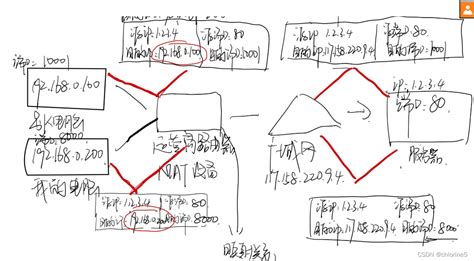 源ip:1.2.3.4 源端口:80
目的ip:192.168.0.100 目的端口:1000
源ip:1.2.3.4 源端口:80
目的ip:17.158.220.9.4
端口=1000
192.168.0.100
ip:1.2.3.4
端口=80
192.168.0.200
我的电脑
运营商路由器
NAT设备
广域网
17.158.220.9.4
服务器
源ip:1.2.3.4 源端口:80
目的ip:192.168.0.200 目的端口:8000
源ip:1.2.3.4 源端口:80
目的ip:17.158.220.9.4 目的端口:8000
CSDN @chlorine5